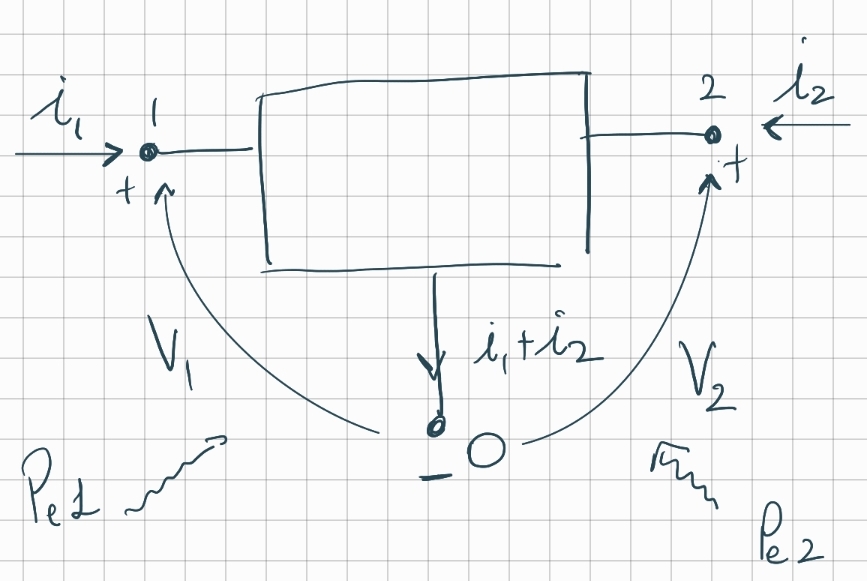 i₁ 1 2 i₂
+ +
V₁ i₁+i₂ V₂
− 0
Pe1 Pe2